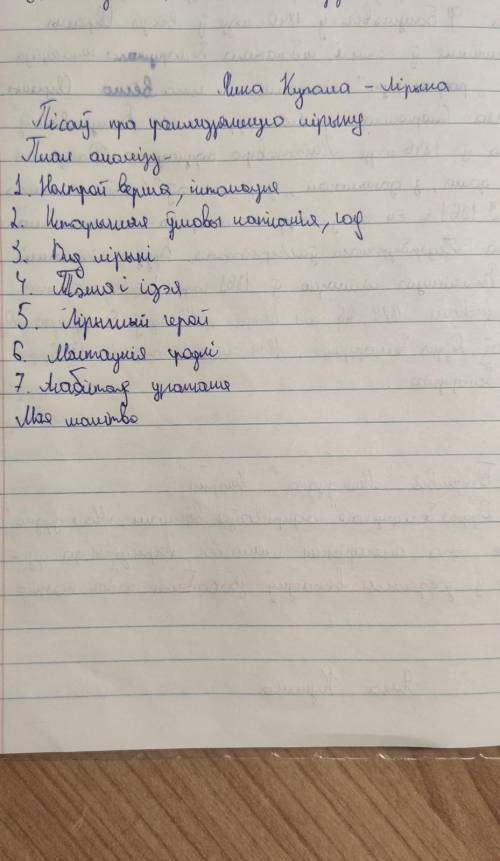 Янка Купала - лірыка
Пісаў пра грамадзянскую лірыку
План аналізу
1. Настрой верша, інтанацыя
2. Гістарычныя ўмовы напісання, год
3. Від лірыкі
4. Тэма і ідэя
5. Лірычны герой
6. Мастацкія сродкі
7. Асабістае ўражанне
Мая малітва